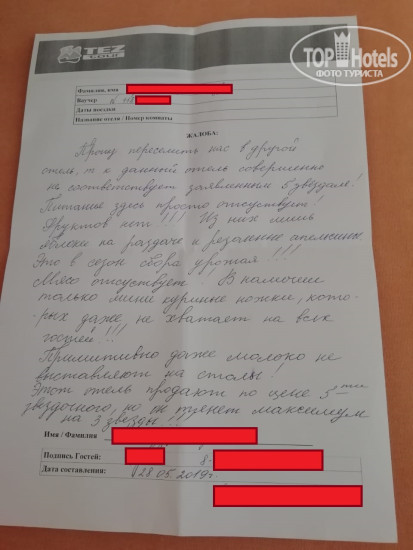 TEZ
TOUR
TOP Hotels
ФОТО ТУРИСТА
Фамилия, имя
Ваучер №
Даты поездки
Название отеля / Номер комнаты
ЖАЛОБА:
Прошу переселить нас в другой
отель, т.к данный отель совершенно
не соответствует заявленным 5 звездам!
Питание здесь просто отсутствует!
Фруктов нет!!! Из них лишь
яблоки на раздаче и резанные апельсины.
Это в сезон сбора урожая!!!
Мясо отсутствует. В наличии
только мини куриные ножки, кото-
-рых даже не хватает на всех
гостей!!!
Примитивно даже молоко не
выставляют на столы!
Этот отель продают по цене 5-ти
звездочного, но он тянет максимум
на 3 звезды!!
Имя / Фамилия
Подпись Гостей: 8-
Дата составления: 28.05.2019г.